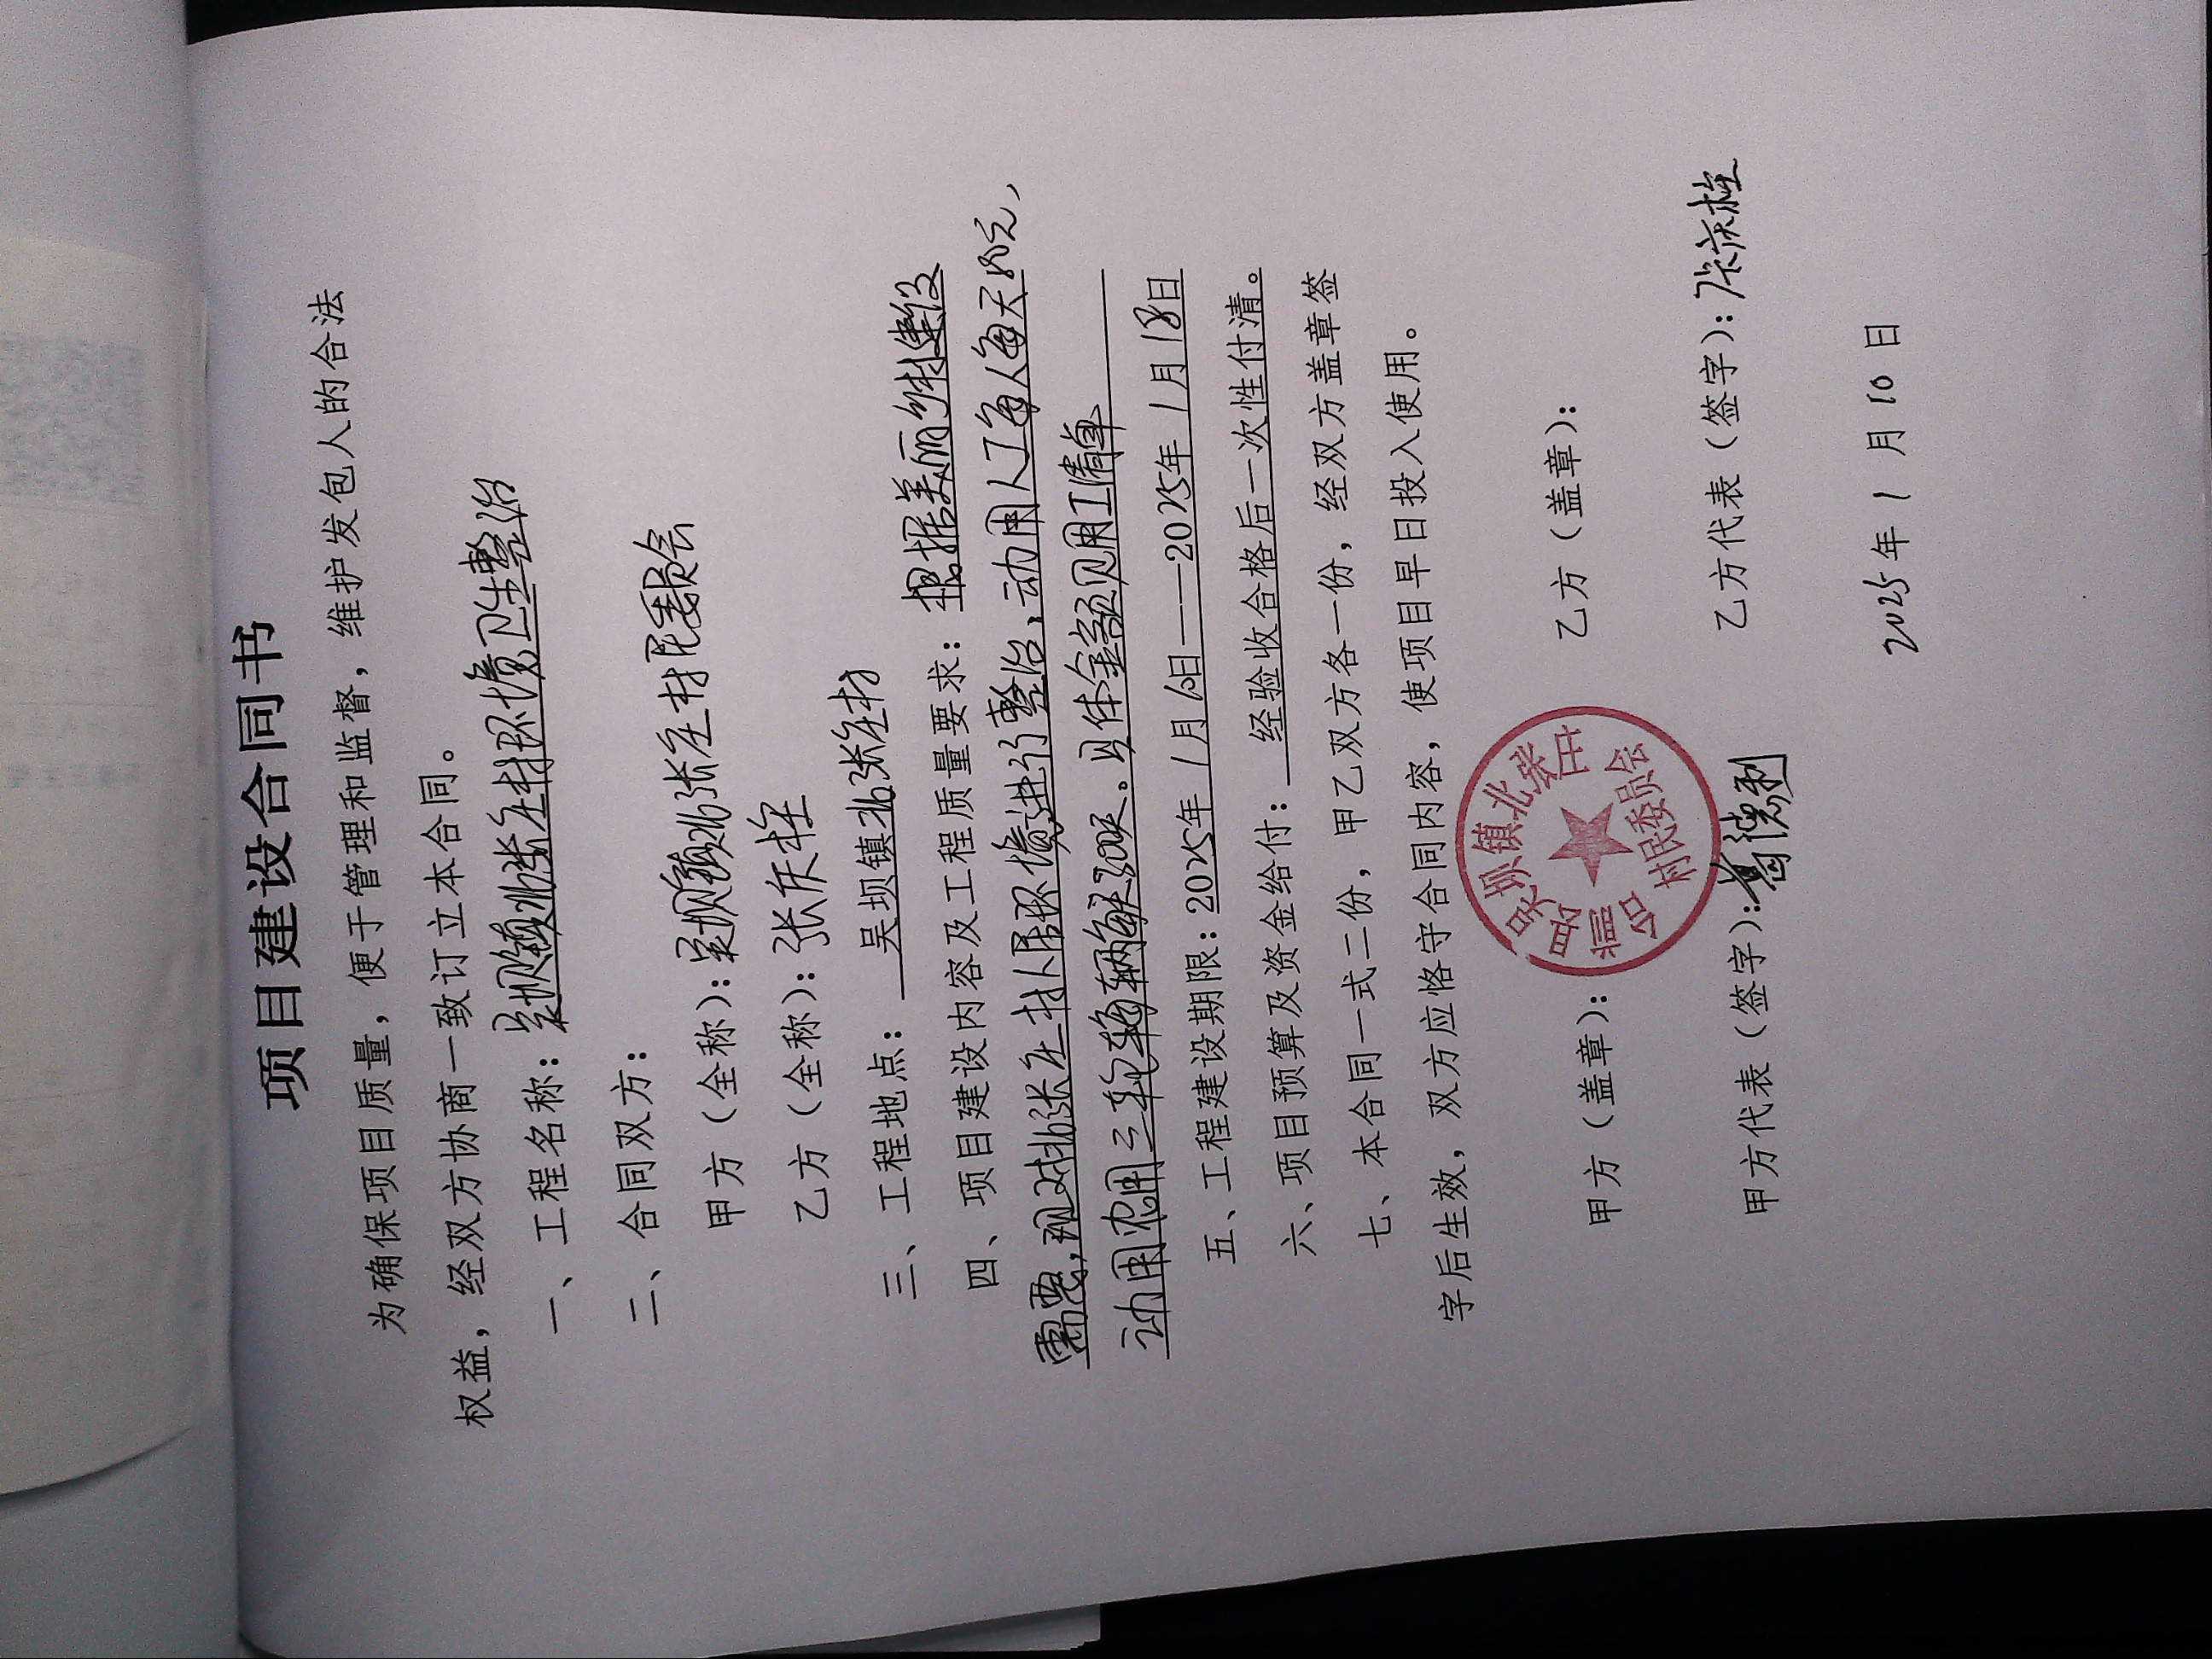 项目建设合同书
为确保项目质量，便于管理和监督，维护发包人的合法
权益，经双方协商一致订立本合同。
一、工程名称：吴坝镇北张庄村环境卫生整治
二、合同双方：
甲方（全称）：吴坝镇北张庄村民委员会
乙方（全称）：张庆柱
三、工程地点：吴坝镇北张庄村
四、项目建设内容及工程质量要求：根据美丽乡村建设
需要，现对北张庄村人居环境进行整治，动用人工每人每天80元，
动用农用三轮车每辆每天200元。具体金额见用工清单
五、工程建设期限：2025年1月10日——2025年1月18日
六、项目预算及资金给付：经验收合格后一次性付清。
七、本合同一式二份，甲乙双方各一份，经双方盖章签
字后生效，双方应恪守合同内容，使项目早日投入使用。
甲方（盖章）： 乙方（盖章）：
吴坝镇北张庄
村民委员会
甲方代表（签字）：葛德利 乙方代表（签字）：张庆柱
2025年1月10日